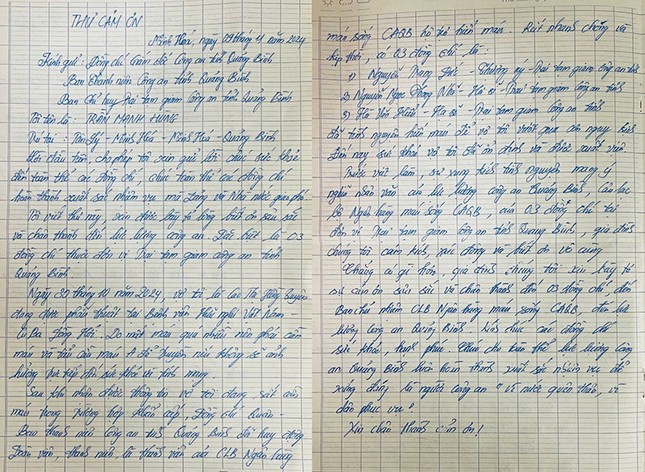 THƯ CẢM ƠN
Minh Hóa, ngày 09 tháng 11 năm 2024
Kính gửi: Đồng chí Giám đốc Công an tỉnh Quảng Bình
Ban Thanh niên Công an tỉnh Quảng Bình
Ban chỉ huy Trại tạm giam Công an tỉnh Quảng Bình
Tôi tên là: TRẦN MẠNH HÙNG
Trú tại: Tân Lý - Minh Hóa - Minh Hóa - Quảng Bình
Lời đầu tiên, cho phép tôi xin gửi lời chúc sức khỏe
đến toàn thể các đồng chí, chúc toàn thể các đồng chí
hoàn thành xuất sắc nhiệm vụ mà Đảng và Nhà nước giao phó.
Tôi viết thư này, xin được bày tỏ lòng biết ơn sâu sắc
và chân thành đến lực lượng công an. Đặc biệt là 03
đồng chí thuộc đơn vị Trại tạm giam công an tỉnh
Quảng Bình.
Ngày 30 tháng 10 năm 2024, vợ tôi là Cao Thị Hồng
đang được phẫu thuật tại Bệnh viện Hữu nghị Việt Nam -
Cu Ba Đồng Hới. Do mất máu quá nhiều nên phải cần
máu và tiểu cầu máu A để truyền nếu không sẽ ảnh
hưởng trực tiếp đến sức khỏe và tính mạng.
Sau khi nhận được thông tin vợ tôi đang rất cần
máu trong trường hợp khẩn cấp, Đồng chí -
Ban thanh niên Công an tỉnh Quảng Bình đã huy động
Đoàn viên, thanh niên là thành viên của CLB Ngân hàng
máu sống CAQB hỗ trợ hiến máu. Rất nhanh chóng và
kịp thời, có 03 đồng chí là:
1) Nguyễn Trung - Thượng úy - Trại tạm giam công an tỉnh
2) Nguyễn Ngọc - Hạ sĩ - Trại tạm giam công an tỉnh
3) Hồ Văn - Hạ sĩ - Trại tạm giam công an tỉnh
đã tình nguyện hiến máu để vợ tôi vượt qua cơn nguy kịch
Đến nay sức khỏe vợ tôi đã ổn định và được xuất viện
Trước việc làm, sự xung kích tình nguyện mang ý
nghĩa nhân văn của lực lượng công an Quảng Bình, Câu lạc
bộ Ngân hàng máu sống CAQB, của 03 đồng chí tại
đơn vị Trại tạm giam công an tỉnh Quảng Bình, gia đình
chúng tôi cảm kích, xúc động và biết ơn vô cùng
Chẳng có gì hơn, gia đình chúng tôi xin bày tỏ
sự cảm ơn sâu sắc và chân thành đến 03 đồng chí, đến
Ban chủ nhiệm CLB Ngân hàng máu sống CAQB, đến lực
lượng Công an Quảng Bình. Kính chúc các đồng chí
sức khỏe, hạnh phúc. Chúc cho toàn thể lực lượng Công
an Quảng Bình luôn hoàn thành xuất sắc nhiệm vụ để
xứng đáng là người công an "vì nước quên thân, vì
dân phục vụ".
Xin chân thành cảm ơn!